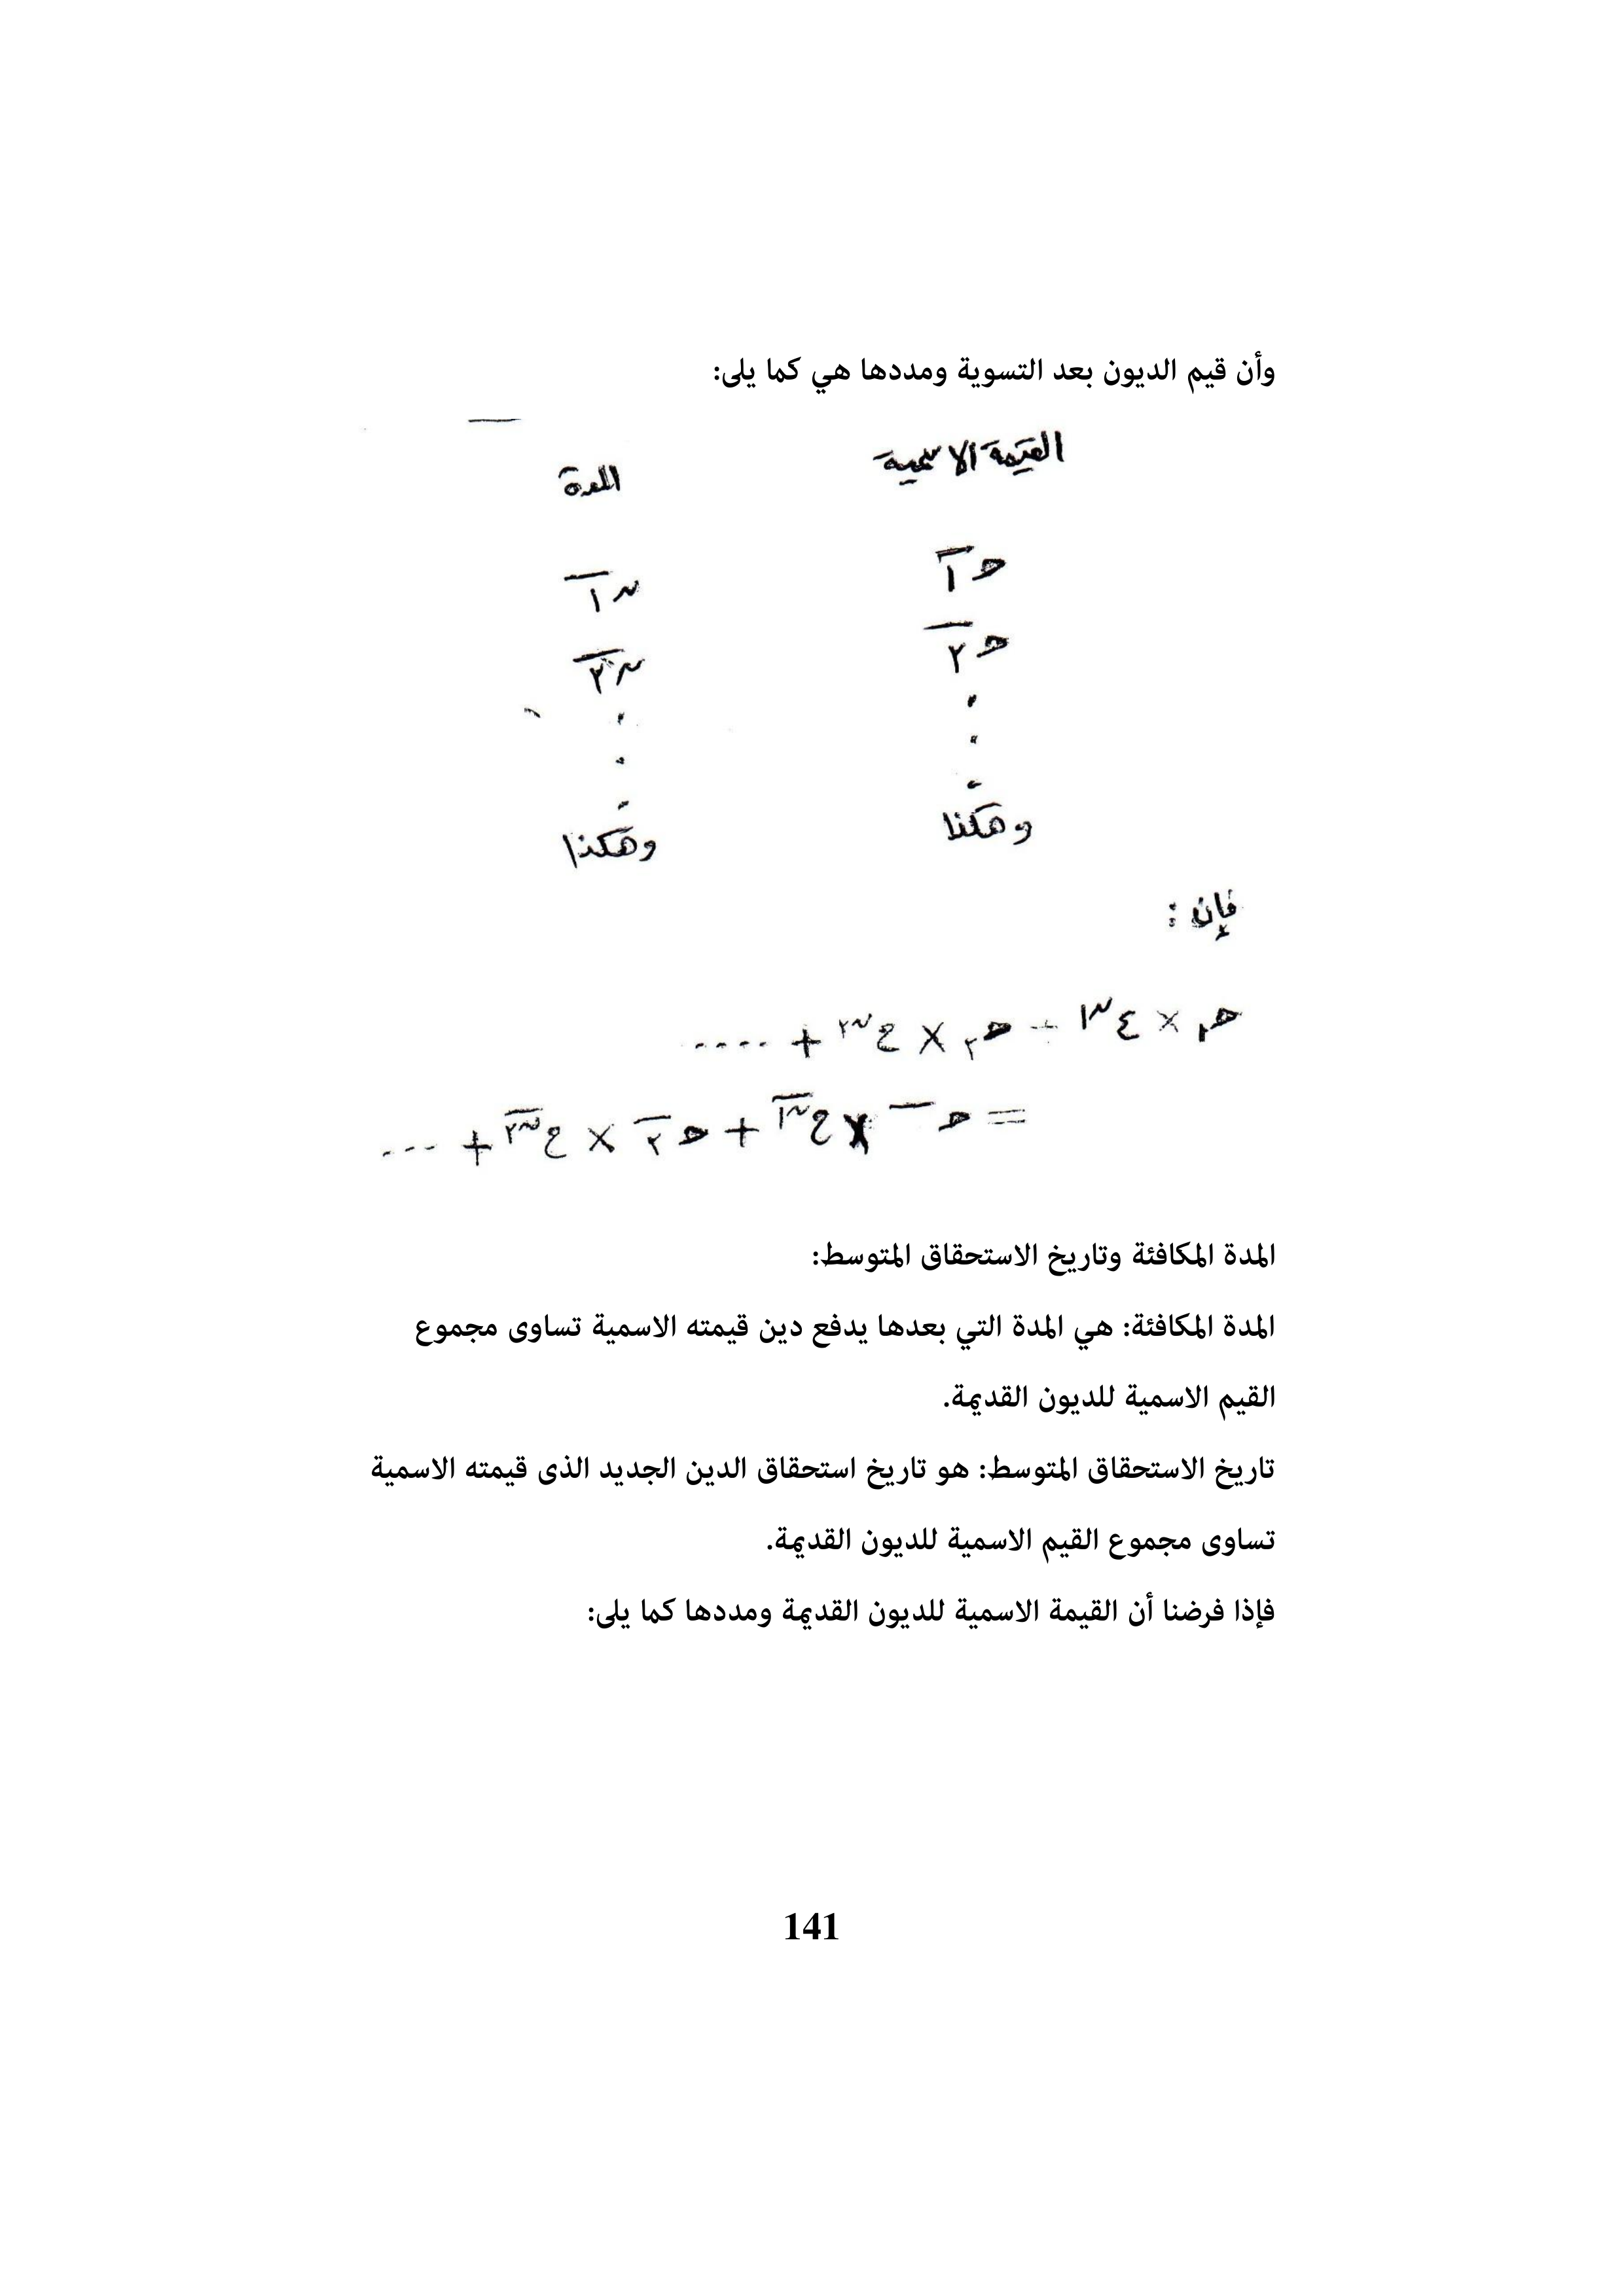 وأن قيم الديون بعد التسوية ومددها هي كما يلى:
القيمة الاسمية المدة
حـ ١̅ ن ١̅
حـ ٢̅ ن ٢̅
. .
. .
. .
وهكذا وهكذا
فإن :
حـ١ × ع ن١ + حـ٢ × ح ن٢ + ....
= حـ ̅ × ح ن١̅ + حـ ٢̅ × ح ن٢̅ + ...
المدة المكافئة وتاريخ الاستحقاق المتوسط:
المدة المكافئة: هي المدة التي بعدها يدفع دين قيمته الاسمية تساوى مجموع
القيم الاسمية للديون القديمة.
تاريخ الاستحقاق المتوسط: هو تاريخ استحقاق الدين الجديد الذى قيمته الاسمية
تساوى مجموع القيم الاسمية للديون القديمة.
فإذا فرضنا أن القيمة الاسمية للديون القديمة ومددها كما يلى:
141